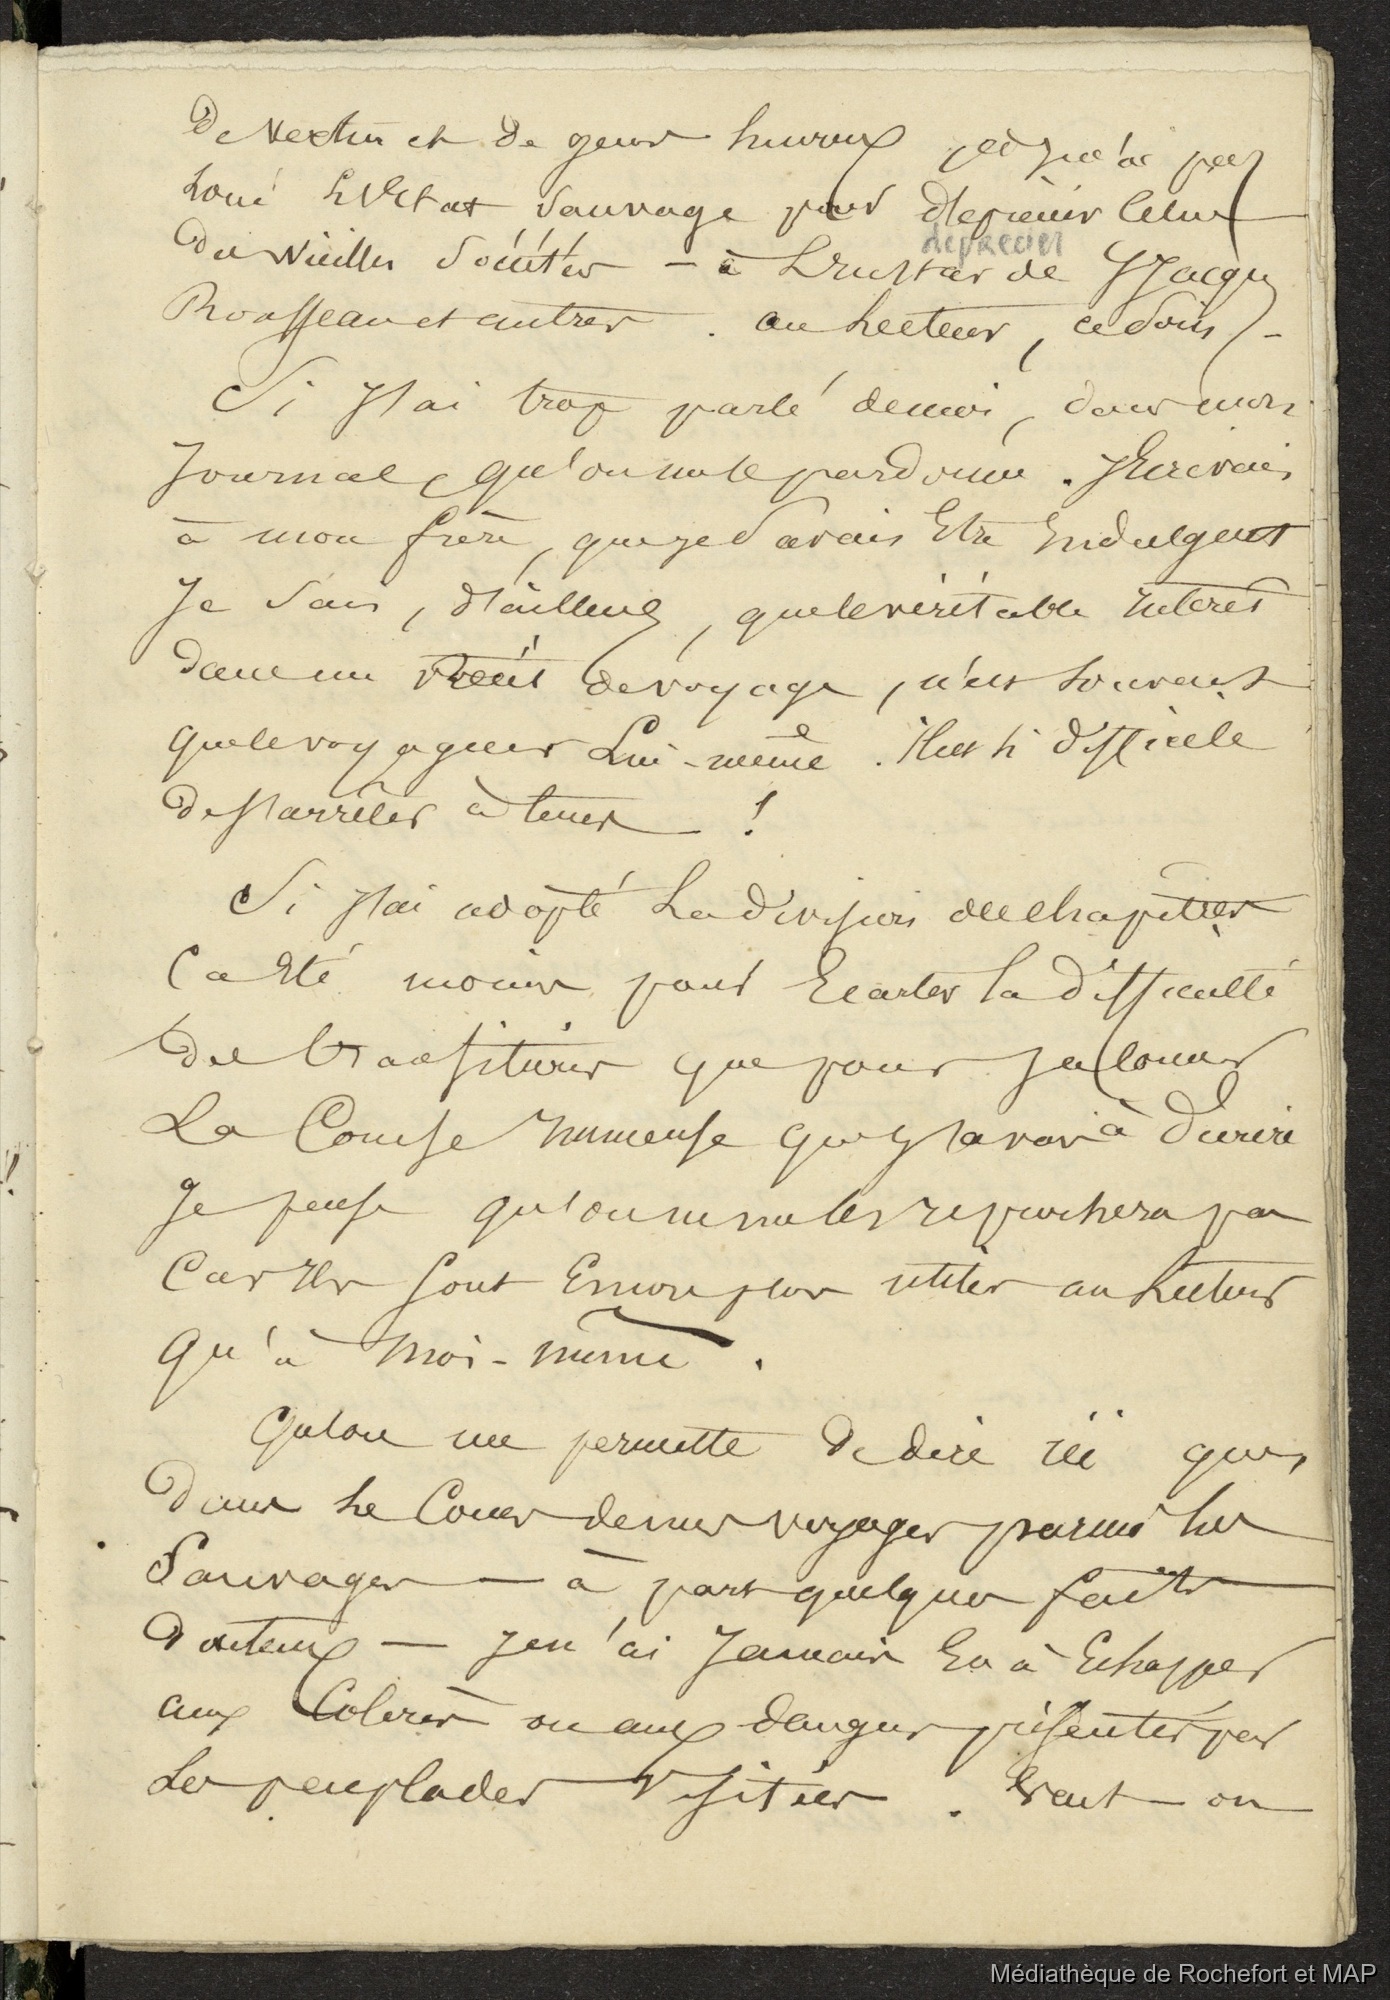 de vertu et de gens heureux je n'ai pas
loué l'état sauvage pour déprécier celui
des vieilles sociétés - à l'instar de J Jacques
deprecier
Rousseau et autres . au lecteur, ce soin -
Si j'ai trop parlé de moi, dans mon
journal, qu'on me le pardonne . J'écrivais
à mon frère, que je savais être indulgent
Je sais, d'ailleurs, que le véritable intérêt
dans un récit de voyage, n'est souvent
que le voyageur lui-même . Il est si difficile
de s'arrêter à temps !
Si j'ai adopté la division de chapitres
ça été moins pour écarter la difficulté
des transitions que pour jalonner
La Course immense que j'avais à décrire
Je pense qu'on ne me les reprochera pas
Car ils sont encore plus utiles au lecteur
qu'à moi-même .
Qu'on me permette de dire ici que,
dans le cours de mes voyages parmi les
Sauvages — à part quelques faits
douteux — je n'ai jamais eu à échapper
aux colères ou aux dangers présentés par
les peuplades visitées . Veut-on
Médiathèque de Rochefort et MAP